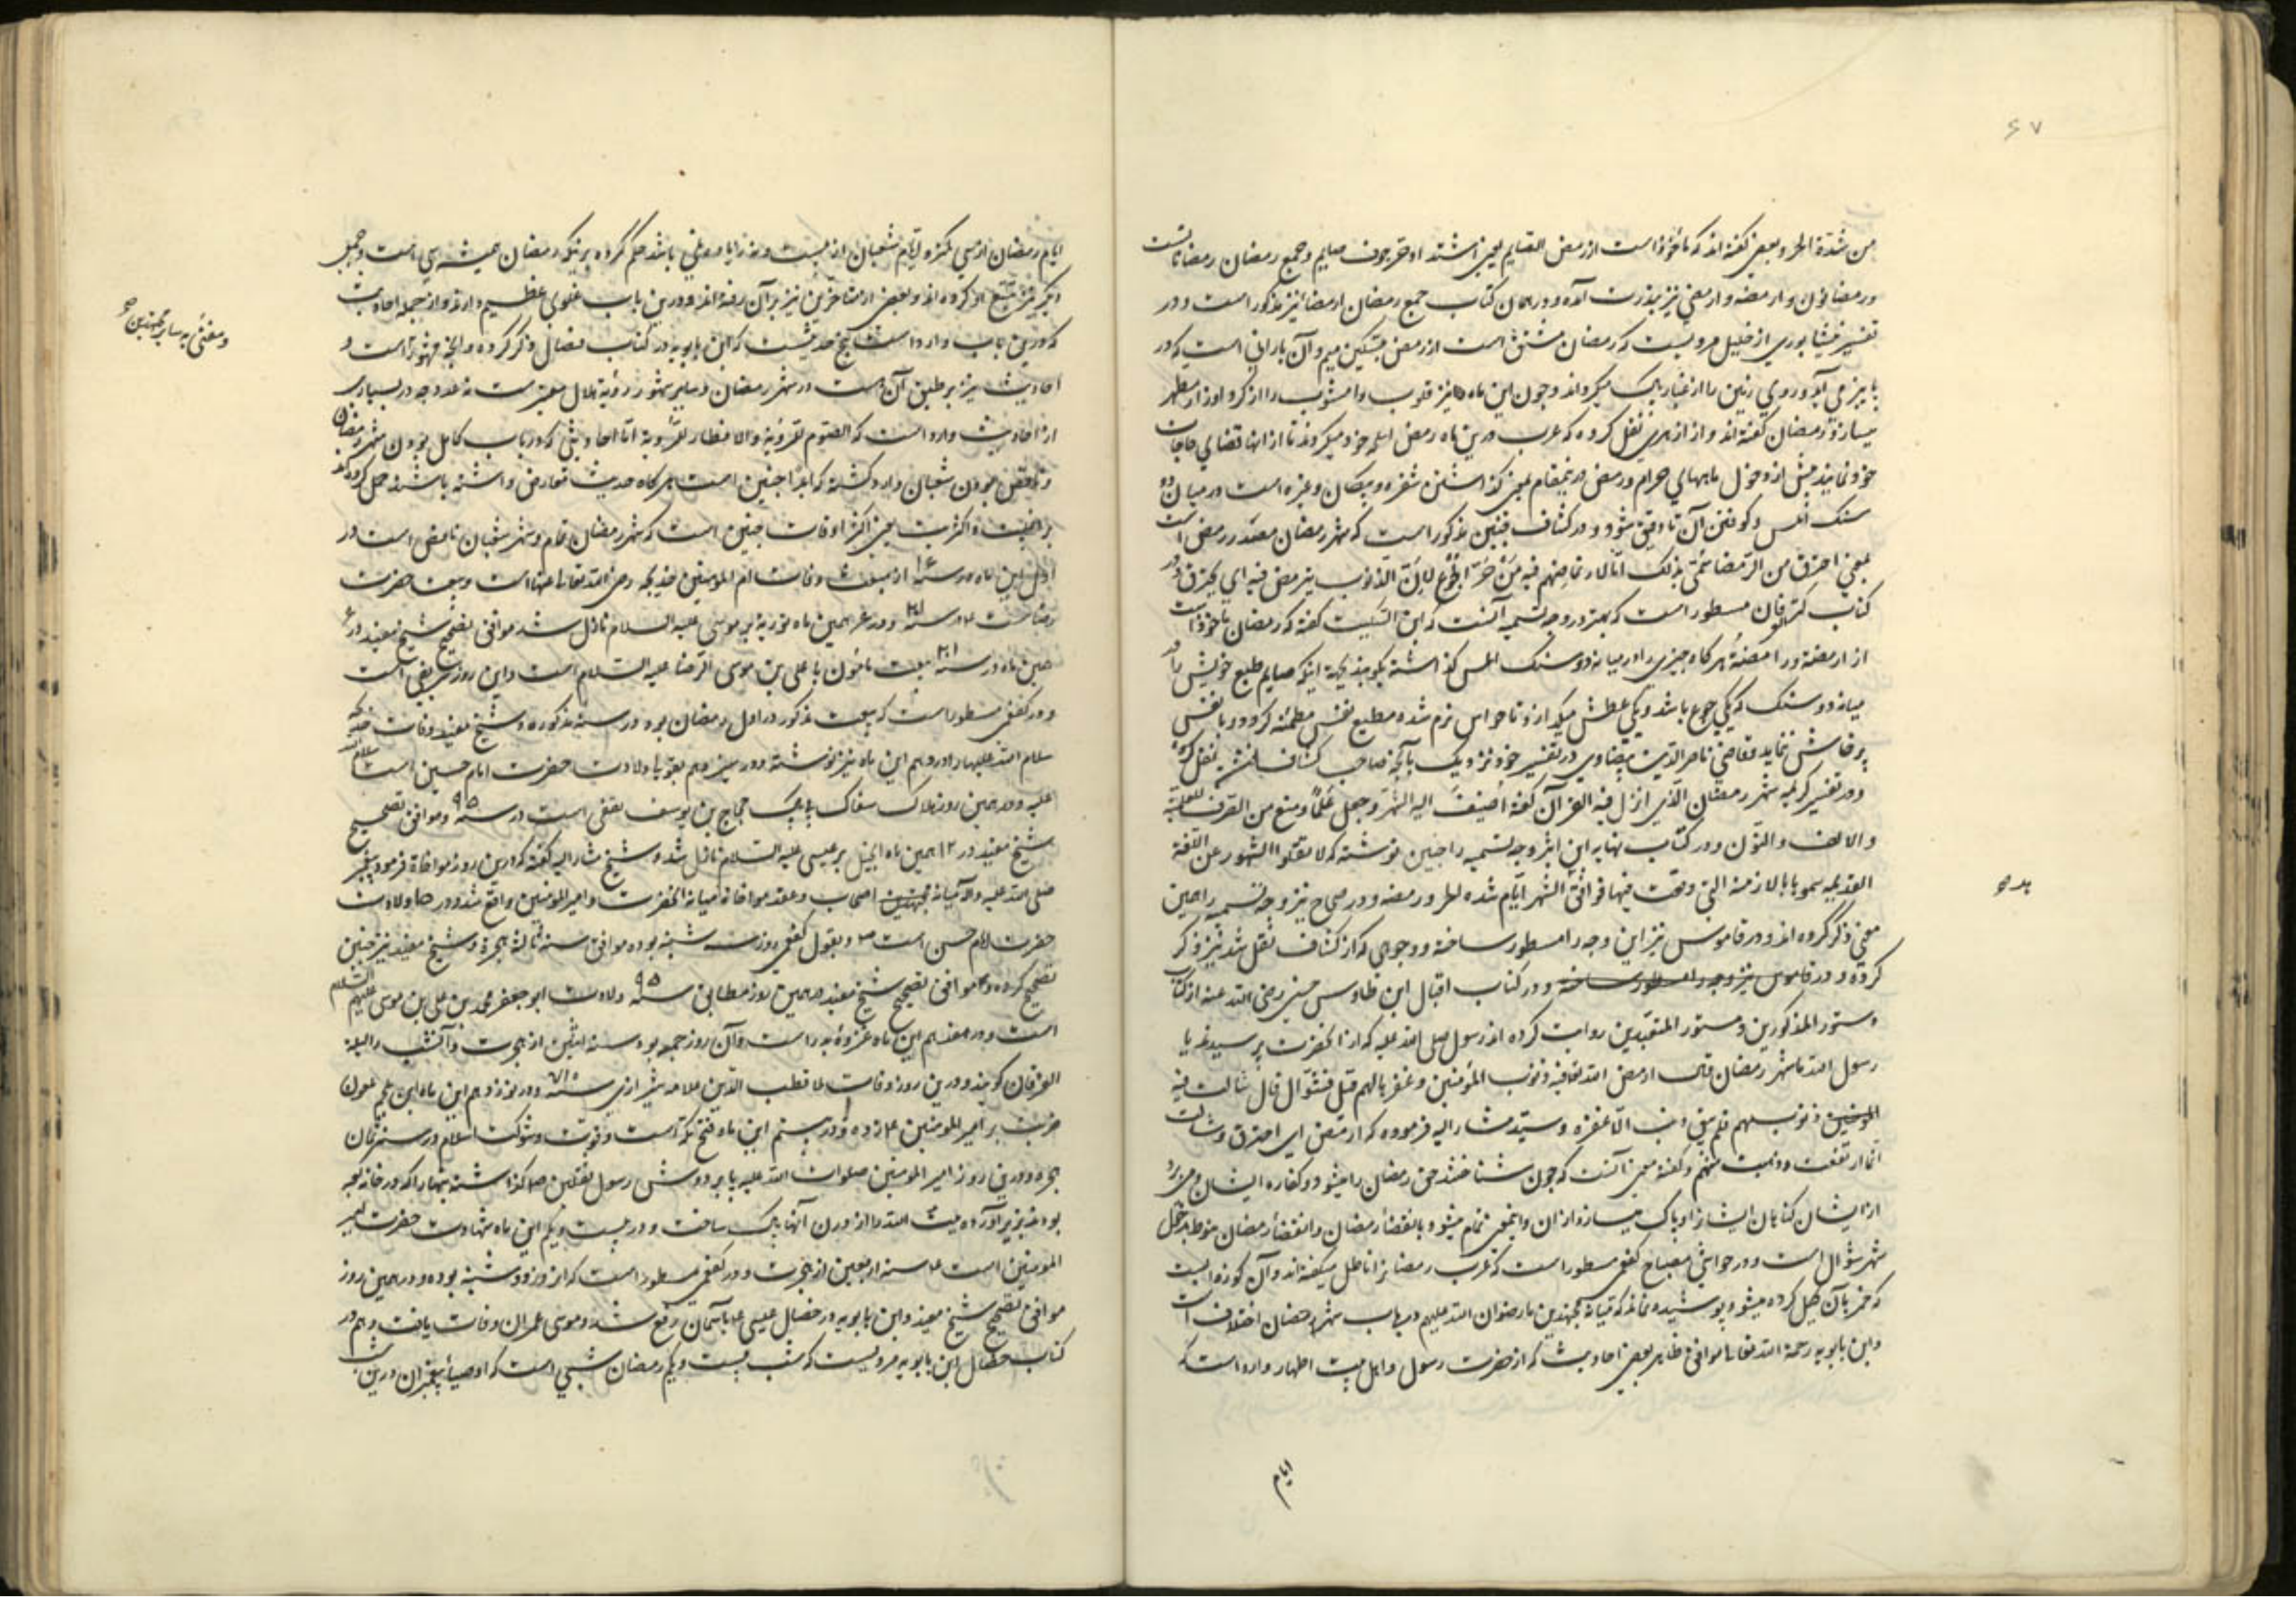 ۶۷
من شدة الحر و بعضی گفته اند که ماخوذ است از رمض الصایم یعنی اشتد حر جوف صایم و جمع رمضان رمضانات
و رمضانون و ارمضه و ارمض نیز بندرت آمده و در همان کتاب جمع رمضان ارمضا نیز مذکور است و در
تفسیر نیشابوری از خلیل مرویست که رمضان مشتق است از رمض بتسکین میم و آن بارانی است که در
پاییز می آید و روی زمین را از غبار پاک میگرداند و چون این ماه نیز قلوب را از
میسازد رمضان گفته اند و از ازهری نقل کرده که عرب درین ماه رمض اسلحه خود میکردند تا از آنها قضای حاجات
خود نمایند پیش از دخول ماههای حرام و رمض درینمقام بمعنی گذاشتن شفره و پیکان و غیره است در میان دو
سنگ املس و کوفتن آن تا دقیق شود و در کشاف چنین مذکور است که شهر رمضان مصدر رمض است
بمعنی احترق من الرمضا سمی بذلک اما لارتماضهم فیه من حر الجوع لان الذنوب یرمض فیه ای یحترق و در
کتاب مسطور است که بهترین وجه تسمیه آنست که ابن السکیت گفته که رمضان ماخوذ است
از ارمضه هرگاه چیزی را در میانه دو سنگ املس گذاشته بکوبند بجهة اینکه صایم طبع خویش را در
میانه دو سنگ که یکی جوع باشد و یکی عطش میگدازد تا حواس نرم شده مطیع نفس مطمئنه گردد و با نفس
پرخاش ننماید و قاضی ناصر الدین بیضاوی در تفسیر خود نزدیک بآنچه صاحب کشاف نقل کرده
و در تفسیر کریمه شهر رمضان الذی انزل فیه القرآن گفته اضیف الیه الشهر و جعل علما و منع من الصرف للعلمیة
و الالف و النون و در کتاب نهایه ابن اثیر وجه تسمیه را چنین نوشته که لما نقلوا الشهور عن اللغة
القدیمه سموها بالازمنه التی وقعت فیها فوافق الشهر ایام شدة الحر و رمضه و در صحاح نیز وجه تسمیه را همین
معنی ذکر کرده اند و در قاموس نیز این وجه را مسطور ساخته و وجوهی که از کشاف نقل شد نیز ذکر
کرده و در قاموس نیز وجه را مسطور ساخته و در کتاب اقبال ابن طاوس حسینی رضی الله عنه از کتاب
دستور المذکورین و منشور المتعبدین روایت کرده اند از رسول صلی الله علیه که از آنحضرت پرسیدند یا
رسول الله ما شهر رمضان قال ارمض الله تعالی فیه ذنوب المؤمنین و غفرها لهم قیل فشوال قال شالت فیه
المؤمنین ذنوبهم فلم یبق ذنب الا غفره و سید مشار الیه فرموده که ارمض ای احترق و شالت
ای ارتفعت و ذهبت عنهم و گفته معنی آنست که چون شناختند حق رمضان را میشود کفاره ایشان و می برد
از ایشان گناهان ایشان را و پاک میسازد از آن و این معنی تمام میشود بانقضاء رمضان و انقضاء رمضان منوط بدخول
شهر شوال است و در حواشی مصباح کفعمی مسطور است که عرب رمضان را ناطل میگفته اند و آن کوزه ایست
که خمر بآن کیل کرده میشود پوشیده نماند که میانه مجتهدین ما رضوان الله علیهم در باب شهر رمضان اختلاف است
و ابن بابویه رحمه الله تعالی موافق ظاهر بعضی احادیث که از حضرت رسول و اهل بیت اطهار وارد است که
ایام
ایام رمضان از سی کمتر و ایام شعبان از بیست و نه زیاده نمی باشد حکم کرده بر اینکه رمضان همیشه سی است و جمعی
دیگر نیز تتبع او کرده اند و بعضی از متاخرین نیز بر آن رفته اند و درین باب غلوی عظیم دارند و از جمله احادیث
که درین باب وارد است پنج حدیثست که ابن بابویه در کتاب خصال ذکر کرده و آنچه مشهور است و
و مفتی به سایر مجتهدین
احادیث نیز بر طبق آن است در شهر رمضان و سایر شهور رؤیة هلال معتبر است نه عدد چه در بسیاری
از احادیث وارد است که الصوم للرؤیة و الافطار للرؤیة اما احادیثی که در باب کامل بودن شهر رمضان
و ناقص بودن شعبان وارد گشته که ابدا چنین است هرگاه حدیث معارض داشته باشد حمل کرده اند
بر اکثریت یعنی اکثر اوقات چنین است که شهر رمضان تمام و شهر شعبان ناقص است در
اول این ماه در سنه از بعثت وفات ام المؤمنین خدیجه رضی الله تعالی عنها است و بیعت حضرت
رضاست در سنه ۲۰۱ و در همین ماه توریة بر موسی علیه السلام نازل شد موافق تصحیح شیخ مفید در ۶
همین ماه در سنه ۲۰۱ بیعت مامون با علی بن موسی الرضا علیه السلام است و این روز شریفی است
و در کفعمی مسطور است که بیعت مذکور در اول رمضان بود در سنه مذکوره و شیخ مفید وفات خدیجه
سلام الله علیها را در دهم این ماه نیز نوشته و در سیزدهم بقولی ولادت حضرت امام حسین است سلام الله
علیه و در همین روز هلاک سفاک بی باک حجاج بن یوسف ثقفی است در سنه ۹۵ و موافق تصحیح
شیخ مفید در ۱۲ همین ماه انجیل بر عیسی علیه السلام نازل شد و شیخ مشار الیه گفته که درین روز مواخاة فرمود پیغمبر
صلی الله علیه و آله میانه اصحاب و عقد مواخاة میانه آنحضرت و امیر المؤمنین واقع شد و در ۱۵ ولادت
حضرت امام حسن است و بقول کفعمی روز سه شنبه بوده موافق سنه ثالثه هجرة و شیخ مفید نیز چنین
تصحیح کرده و موافق تصحیح شیخ مفید در همین روز مطابق سنه ۱۹۵ ولادت ابو جعفر محمد بن علی بن موسی علیهم السلام
است و در هفدهم این ماه غزوه بدر است و آن روز جمعه بود سنه اثنین از هجرت و آنشب را لیلة
الفرقان گویند و درین روز وفات ملا قطب الدین علامه شیرازی سنه ۷۱۰ و در نوزدهم این ماه ابن ملجم ملعون
ضربت بر امیر المؤمنین زده و در بیستم این ماه فتح مکه است و قوت و شوکت اسلام در سنه ثمان
هجره و درین روز امیر المؤمنین صلوات الله علیه پا بر دوش رسول ثقلین گذاشته بتها را که در خانه کعبه
بودند بزیر آورده بیت الله را از آنها پاک ساخت و در بیست و یکم این ماه شهادت حضرت امیر
المؤمنین است سنه اربعین از هجرت و در کفعمی مسطور است که آن روز دوشنبه بوده و در همین روز
موافق تصحیح شیخ مفید و ابن بابویه در خصال عیسی بآسمان رفع شد و موسی عمران وفات یافت و هم در
کتاب خصال ابن بابویه مرویست که شب بیست و یکم رمضان شبی است که اوصیاء پیغمبران درین شب